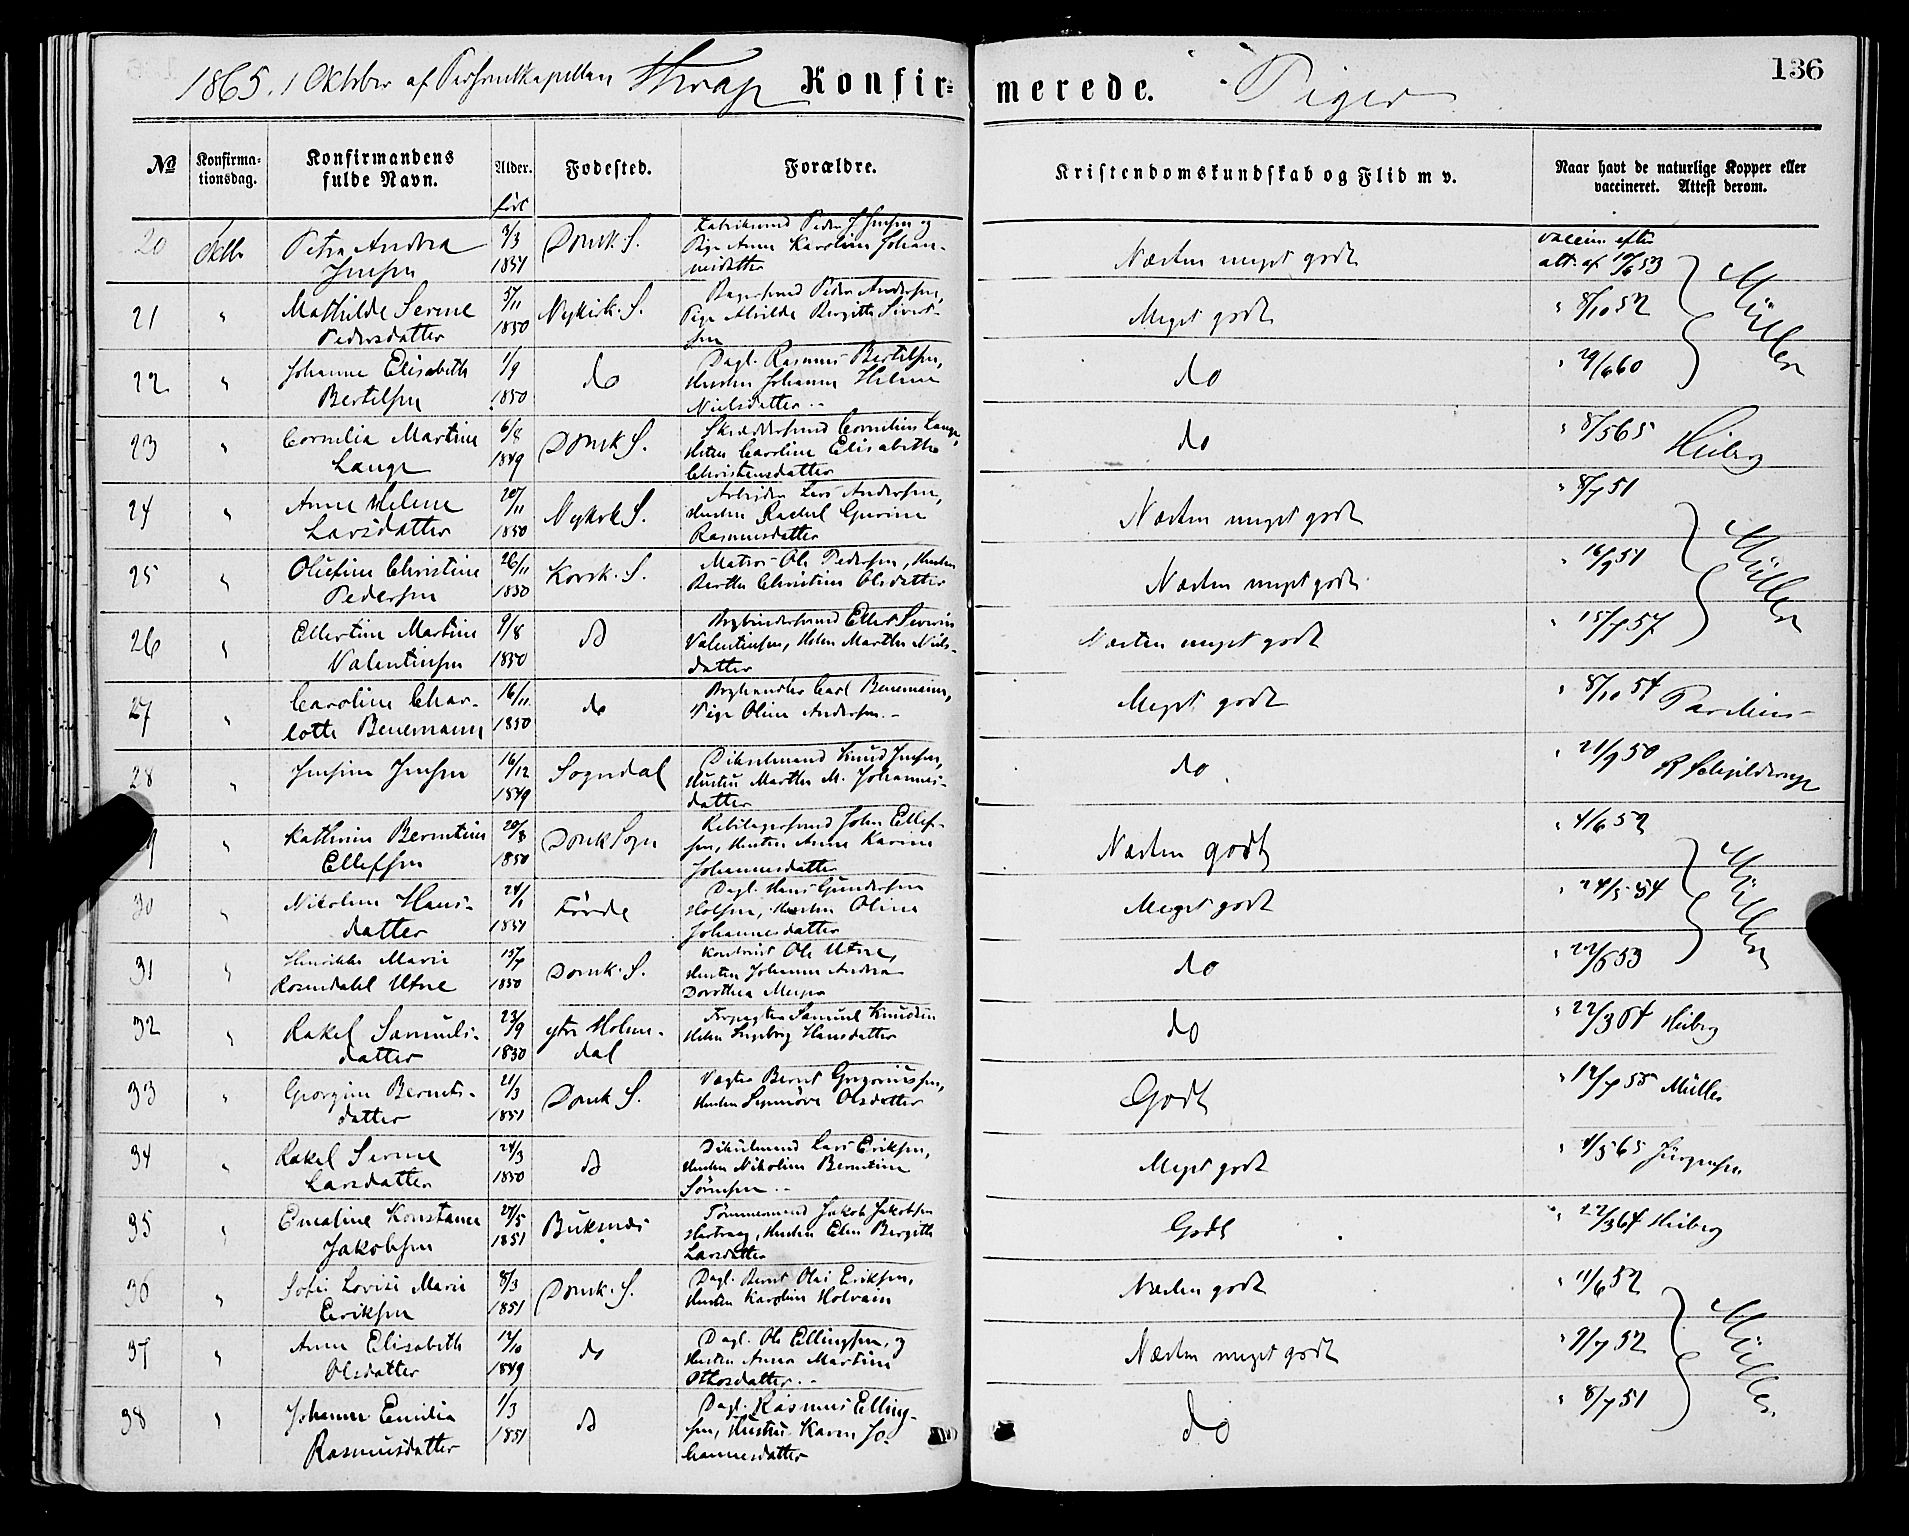 1865. 1 Oktober af Personelkapellan Konfirmerede. Piger 136
№ Konfirmationsdag. Konfirmandens fulde Navn. Alder. født Fodested. Forældre. Kristendomskundskab og Flid m v. Naar havt de naturlige Kopper eller vaccineret. Attest derom.
20 Oktbr Petra Andrea Jensen 3/3 1851 Domk. S. Peder J. Jensen og Pige Anne Karoline Johannesdatter Næsten meget godt vaccin. efter att. af 10/6 53
21 " Mathilde Serine Pedersdatter 5/11 1850 Nykirk. S. Peder Andersen, Pige Alvilde Bergitte Sivertsen Meget godt " 8/10 52
22 " Johanne Elisabeth Bertelsen 1/9 1850 do Dagl. Rasmus Bertelsen, Hustru Johanna Helene Nielsdatter do " 29/6 60 Müller
23 " Cornelia Martine Lange 6/8 1849 Domk S. Cornelius Lange, Hstru Caroline Elisabeth Christensdatter do " 8/5 65 Heiberg
24 " Anne Helene Larsdatter 20/11 1850 Nykirk S. Arbeider Lars Andersen, Hustru Rachel Gurine Rasmusdatter Næsten meget godt " 8/7 51
25 " Olufine Christine Pedersen 26/11 1850 Korsk. S. Matros Ole Pedersen, Hustru Berthe Christine Olsdatter Næsten meget godt " 16/9 51
26 " Ellertine Martine Valentinsen 9/8 1850 do Ellert Severin Valentinsen, Hstru Marthe Nielsdatter Næsten meget godt " 15/7 57 Müller
27 " Caroline Charlotte Benemann 16/11 1850 do Carl Benemann, Pige Oline Andersen. Meget godt " 8/10 54
28 " Jensine Jensen 16/12 1849 Sogndal Knud Jensen, Hustru Marthe M. Johannesdatter do " 21/9 50
9 " Kathrine Berntine Ellefsen 20/8 1850 Domk Sogn John Ellefsen, Hustru Anne Karine Johannesdatter Næsten godt " 4/6 52
30 " Nikoline Hansdatter 24/1 1851 Førde Dagl. Hans Gundersen Holsen, Hustru Oline Johannesdatter Meget godt " 24/5 54
31 " Henrikke Marie Rosendahl Utne 15/7 1850 Domk. S. Ole Utne, Hustru Johanne Andrea Dorothea Meyer do " 22/6 53 Müller
32 " Rakel Samuelsdatter 23/9 1850 ytre Holmedal Samuel Knudsen Hstru Ingeborg Hansdatter do " 22/3 64 Heiberg
33 " Georgine Berntsdatter 21/3 1851 Domk S. Vægter Bernt Gregoriussen, Hustru Synnøve Olsdatter Godt " 12/7 55 Müller
34 " Rakel Serine Larsdatter 24/3 1850 do Lars Eriksen, Hustru Nikoline Berntine Sørensen Meget godt " 4/5 65 Jürgensen
35 " Emeline Konstance Jakobsen 27/5 1851 Buksnæs Tømmermand Jakob Jakobsen, Hustru Elen Bergitte Larsdatter Godt " 22/3 64 Heiberg
36 " Sofie Lovise Marie Eriksen 8/3 1851 Domk. S. Dagl. Bernt Olai Eriksen, Hustru Karoline Næsten godt " 11/6 52
37 " Anne Elisabeth Olsdatter 12/10 1849 do Dagl. Ole Ellingsen, og Hustru Anna Martine Othosdatter Næsten meget godt " 9/7 52
38 " Johanne Emilia Rasmusdatter 1/3 1851 do Dagl. Rasmus Ellingsen, Hustru Karen Johannesdatter do " 8/7 51 Müller